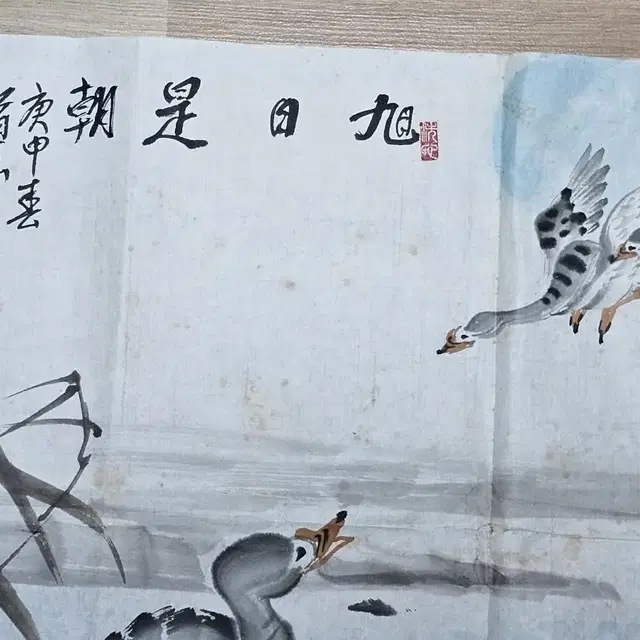 旭日是朝
庚申春